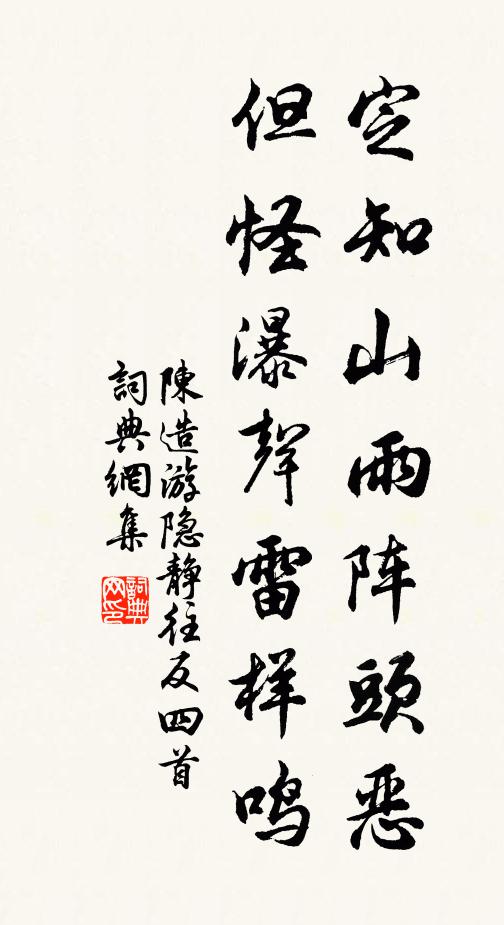 定知山雨阵頭恶
但怪瀑聲雷样鸣
陳造游隐静往反四首
詞典網集